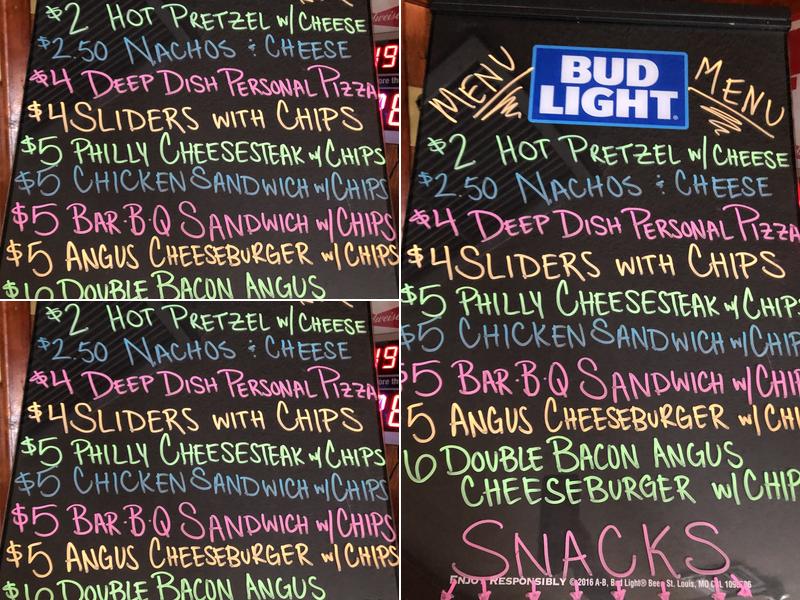 $2 HOT PRETZEL W/CHEESE
$2.50 NACHOS & CHEESE
$4 DEEP DISH PERSONAL PIZZA
$4 SLIDERS WITH CHIPS
$5 PHILLY CHEESESTEAK w/CHIPS
$5 CHICKEN SANDWICH w/CHIPS
$5 BAR·B·Q SANDWICH w/CHIPS
$5 ANGUS CHEESEBURGER w/CHIPS
DOUBLE BACON ANGUS
$2 HOT PRETZEL W/CHEESE
$2.50 NACHOS & CHEESE
$4 DEEP DISH PERSONAL PIZZA
$4 SLIDERS WITH CHIPS
$5 PHILLY CHEESESTEAK w/CHIPS
$5 CHICKEN SANDWICH w/CHIPS
$5 BAR·B·Q SANDWICH w/CHIPS
$5 ANGUS CHEESEBURGER w/CHIPS
DOUBLE BACON ANGUS
MENU BUD LIGHT MENU
$2 HOT PRETZEL W/CHEESE
$2.50 NACHOS & CHEESE
$4 DEEP DISH PERSONAL PIZZA
$4 SLIDERS WITH CHIPS
$5 PHILLY CHEESESTEAK w/CHIPS
$5 CHICKEN SANDWICH w/CHIP
$5 BAR·B·Q SANDWICH w/CHIP
5 ANGUS CHEESEBURGER w/CHI
6 DOUBLE BACON ANGUS
CHEESEBURGER w/CHIP
SNACKS
ENJOY RESPONSIBLY © 2016 A-B, Bud Light® Beer, St. Louis, MO